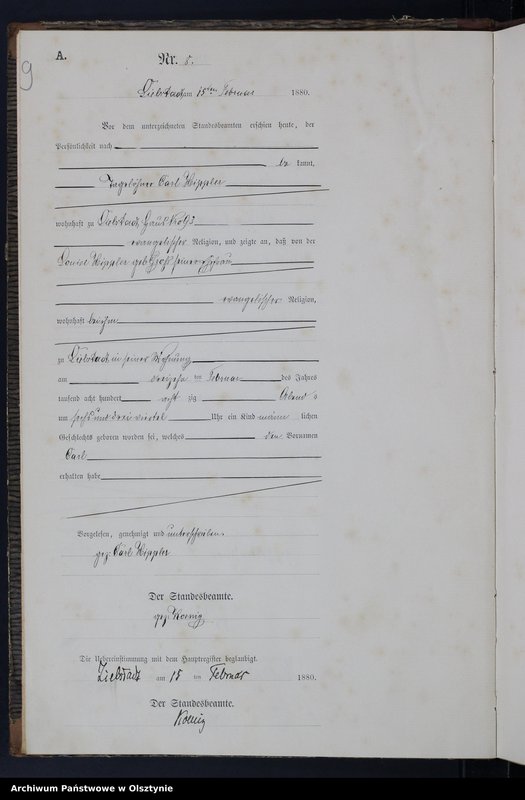 9
A.
Nr. 8.
Liebstadt am 15ten Februar 1880.
Vor dem unterzeichneten Standesbeamten erschien heute, der
Persönlichkeit nach
kannt,
Tagelöhner Carl Wippler
wohnhaft zu Liebstadt, Haus No
evangelischer Religion, und zeigte an, daß von der
Louise Wippler geb. seiner Ehefrau
evangelischer Religion,
wohnhaft bei ihm
zu Liebstadt in seiner Wohnung
am dreizehn ten Februar des Jahres
tausend acht hundert acht zig Abends
um sechs und drei viertel Uhr ein Kind männ lichen
Geschlechts geboren worden sei, welches den Vornamen
Carl
erhalten habe
Vorgelesen, genehmigt und unterschrieben.
gez. Carl Wippler
Der Standesbeamte.
gez. Koenig
Die Uebereinstimmung mit dem Hauptregister beglaubigt.
Liebstadt am 15 ten Februar 1880.
Der Standesbeamte.
Koenig
Archiwum Państwowe w Olsztynie